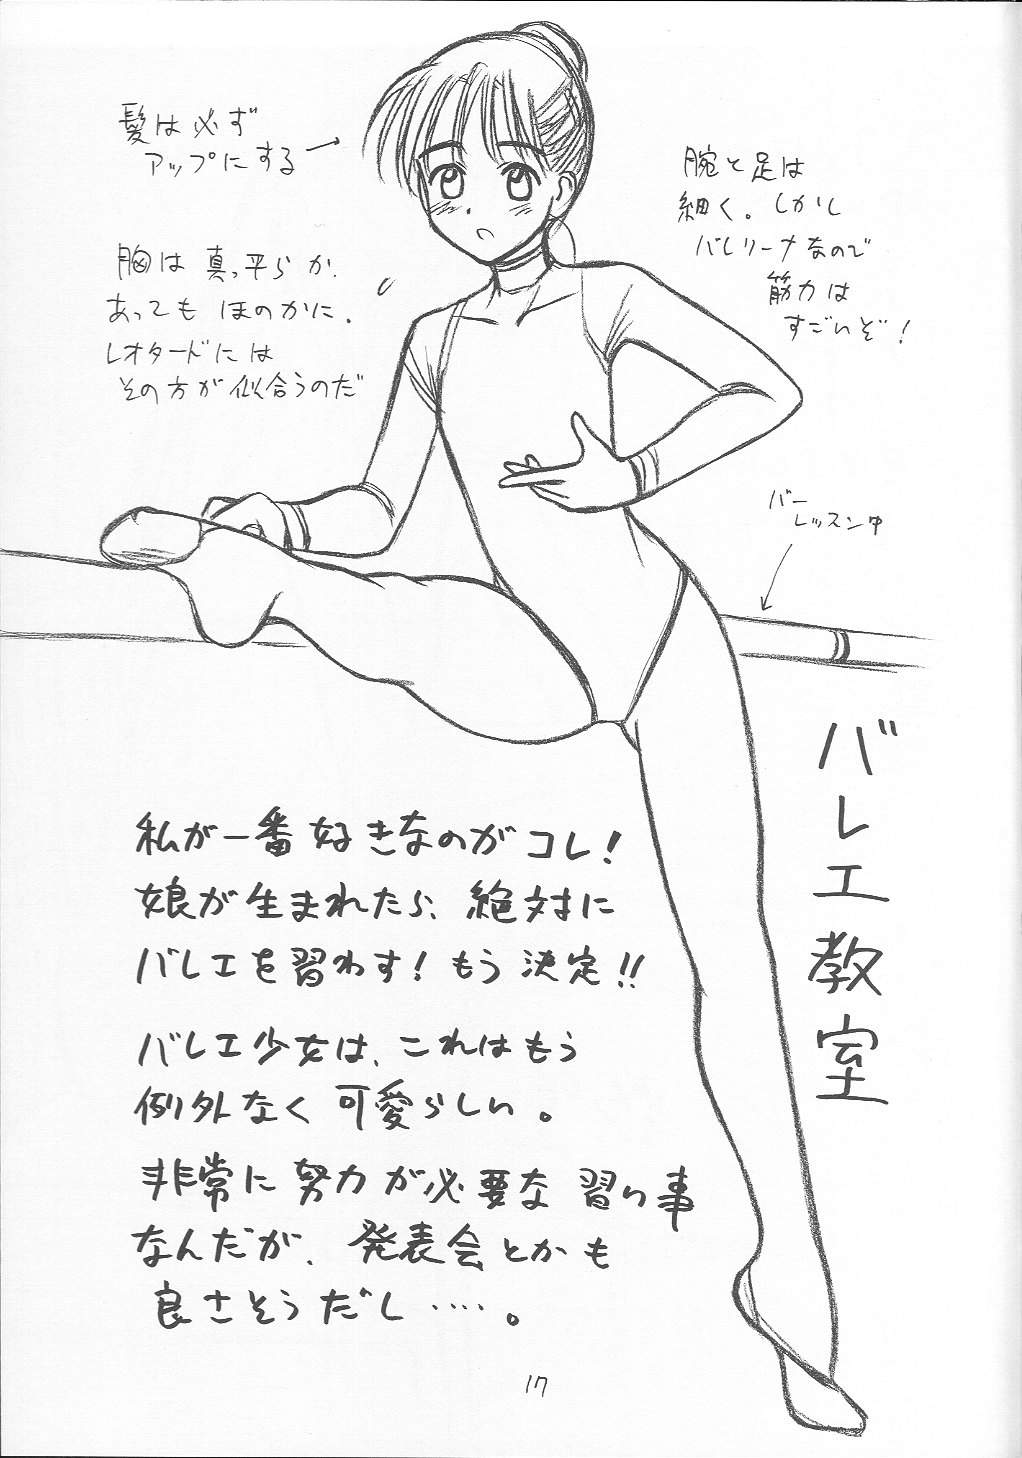 髪は必ず
アップにする
胸は真っ平らか、
あってもほのかに。
レオタードには
その方が似合うのだ
腕と足は
細く。しかし
バレリーナなので
筋力は
すごいぞ!
バー
レッスン中
バレエ教室
私が一番好きなのがコレ!
娘が生まれたら、絶対に
バレエを習わす!もう決定!!
バレエ少女は、これはもう
例外なく可愛らしい。
非常に努力が必要な習い事
なんだが、発表会とかも
良さそうだし……。
17